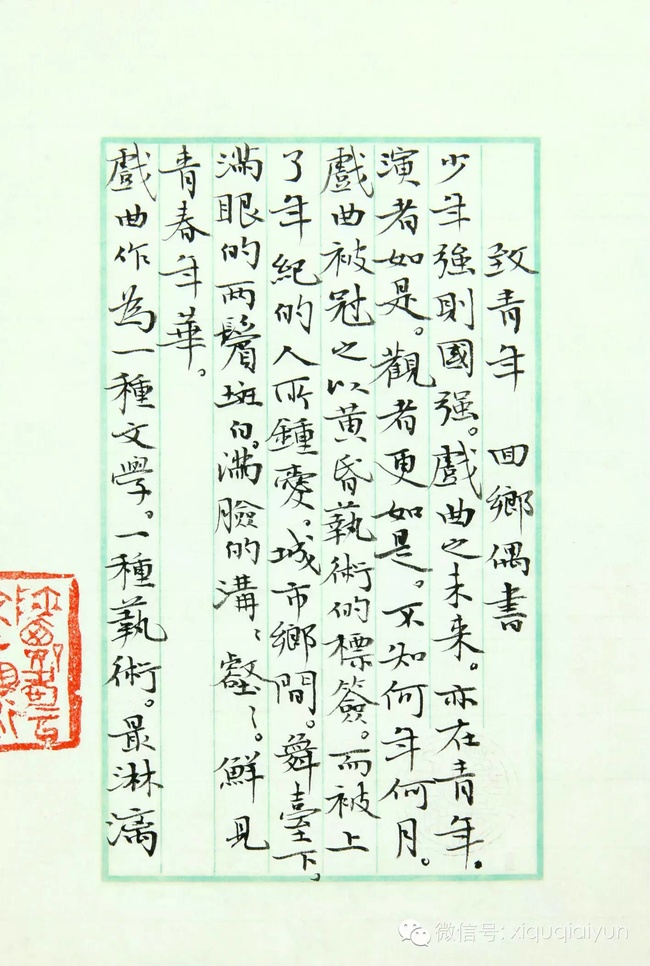 致青年　回鄉偶書
少年強則國强。戲曲之未来。亦在青年.
演者如是。觀者更如是。不知何年何月。
戲曲被冠之以黄昏藝術的標簽。而被上
了年紀的人所鍾愛。城市鄉間。舞臺下。
滿眼的两鬢斑白。滿臉的溝溝壑壑。鮮見
青春年華。
戲曲作為一種文學。一種藝術。最淋漓
微信号: xiquqiaiyun